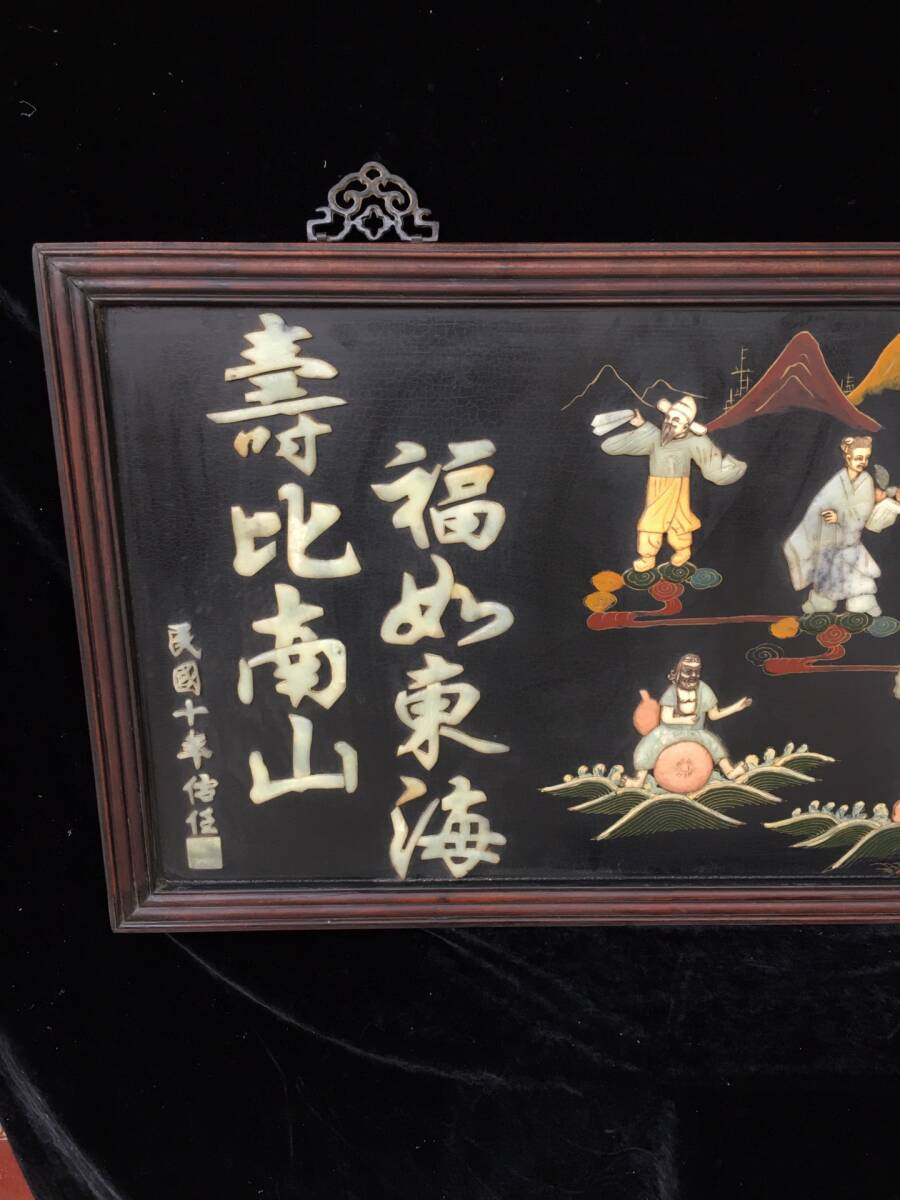 福如東海
壽比南山
民國十年倍任